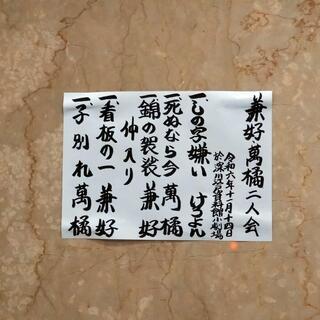 兼好 萬橘 二人会
令和六年十一月十四日
於 深川江戸資料館小劇場
一、しの字嫌い けろよん
一、死ぬなら今 萬橘
一、錦の袈裟 兼好
仲入り
一、看板の一 兼好
一、子別れ 萬橘